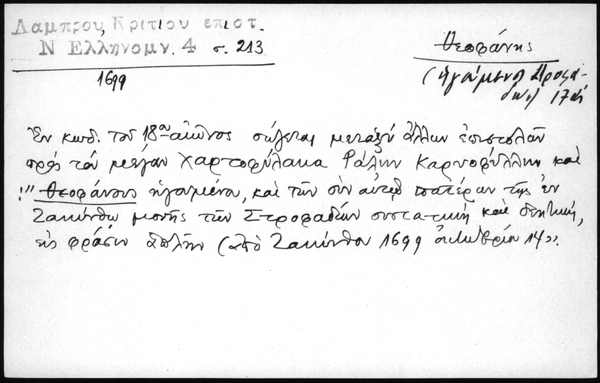 Λαμπρου, Κριτιου επιστ.
Ν Ελληνομν. 4 σ. 213
1699
Θεοφάνης
(ἡγούμενος Στροφά-
δων) 17αι
Ἐν κώδ. τοῦ 18ου αἰῶνος σῴζεται μεταξὺ ἄλλων ἐπιστολῶν
πρὸς τὸν μέγαν Χαρτοφύλακα Ράλην Καρυοφύλλην καὶ
!" Θεοφάνους ἡγουμένου, καὶ τῶν σὺν αὐτῷ πατέρων τῆς ἐν
Ζακύνθῳ μονῆς τῶν Στροφάδων συστατικὴ καὶ
εἰς φράσιν ἁπλῆν (ἀπὸ Ζακύνθου 1699 ὀκτωβρίου 14)».